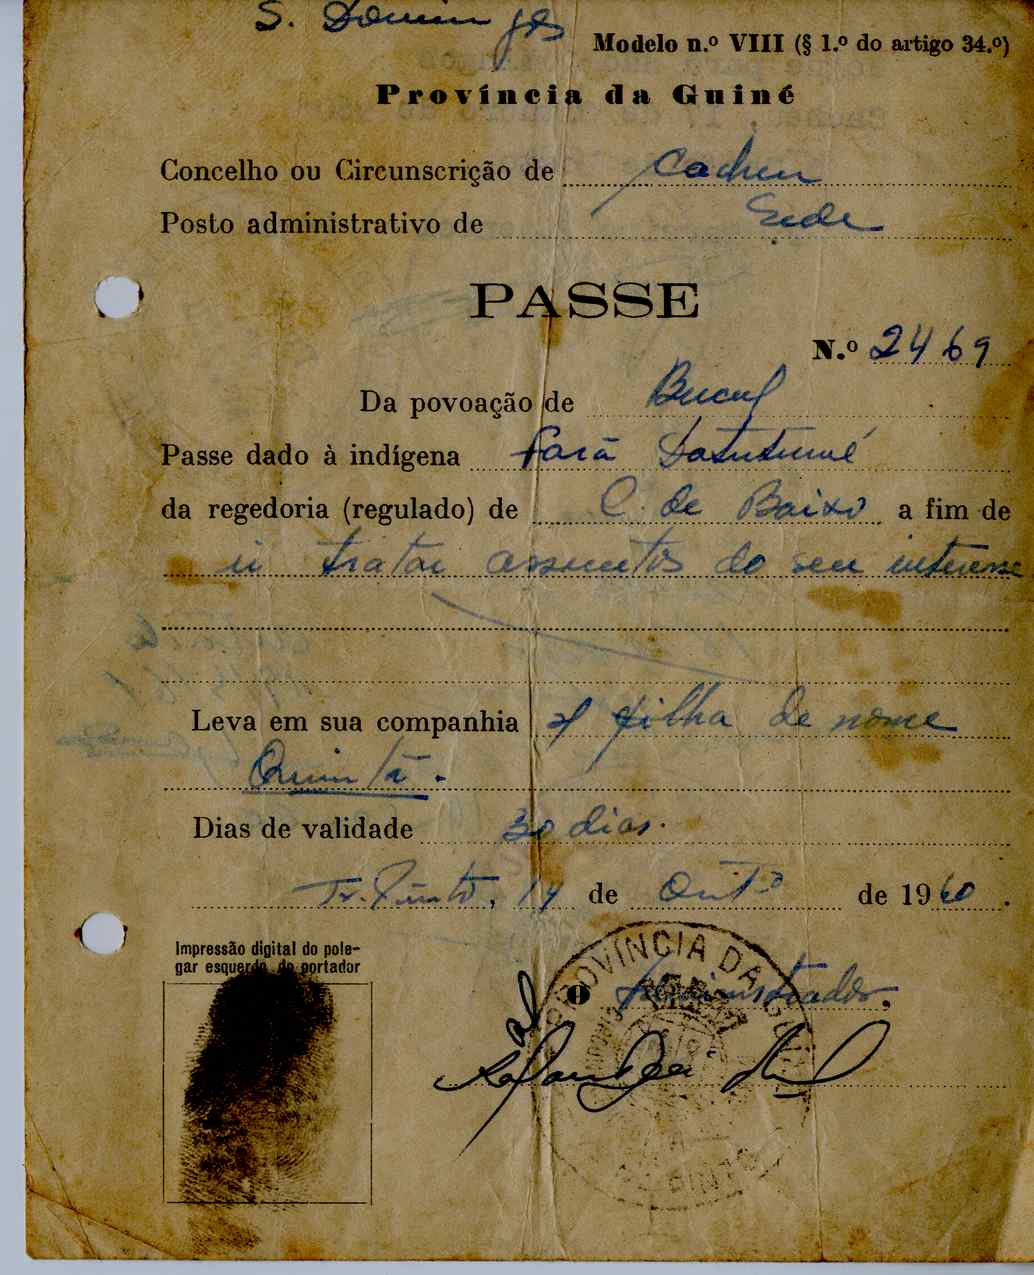 S. Domingos
Modelo n.º VIII (§ 1.º do artigo 34.º)
Província da Guiné
Concelho ou Circunscrição de Cacheu
Posto administrativo de Sede
PASSE
N.º 2469
Da povoação de Bucul
Passe dado à indígena
da regedoria (regulado) de C. de Baixo a fim de
ir tratar assuntos do seu interesse
Leva em sua companhia 1 filha de nome
Quintã.
Dias de validade 30 dias.
Tx. Pinto, 14 de Outº de 1960.
Impressão digital do pole-
gar esquerdo do portador
PROVÍNCIA DA GUINÉ
O Administrador,
PINTO